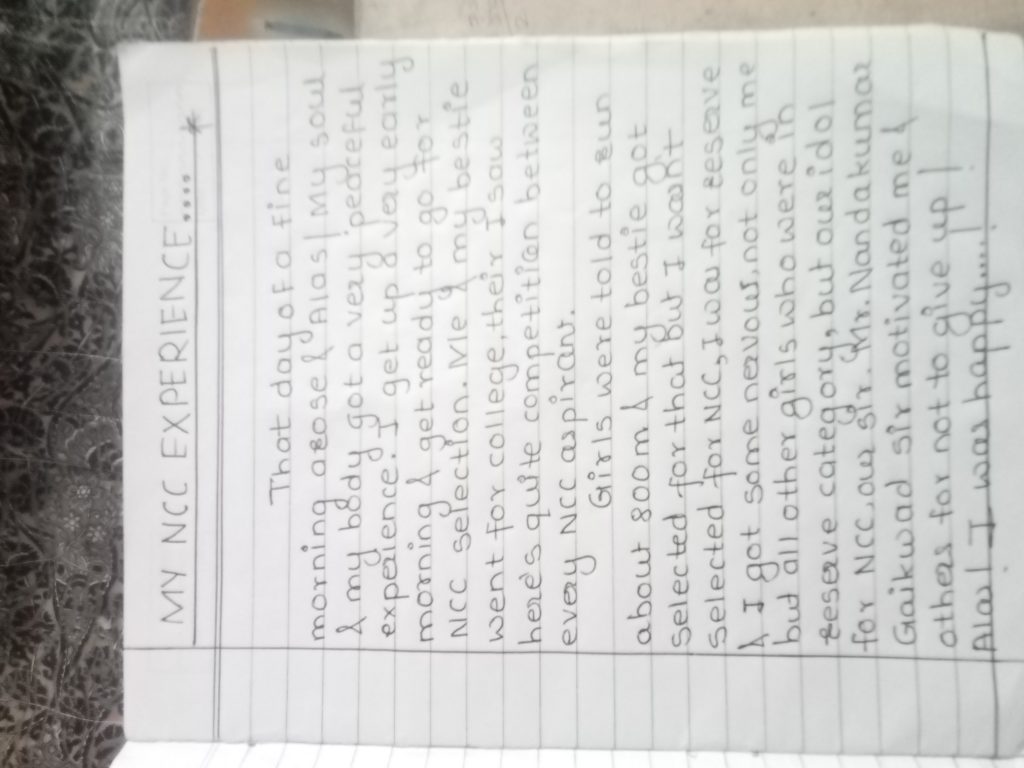 MY NCC EXPERIENCE....
That day of a fine
morning arose & Alas! My soul
& my body got a very peaceful
experience. I get up very early
morning & get ready to go for
NCC selection. Me & my bestie
went for college, their I saw
here's quite competition between
every NCC aspirant.
Girls were told to run
about 800m & my bestie got
selected for that but I wasn't
selected for NCC, I was for reserve
& I got some nervous, not only me
but all other girls who were in
reserve category, but our idol
for NCC, our sir. Mr. Nandakumar
Gaikwad sir motivated me &
others for not to give up!
Alas! I was happy....!